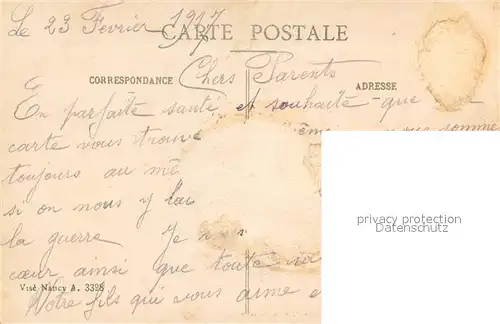 Le 23 Fevrier 1917
CARTE POSTALE
CORRESPONDANCE
Chers Parents
ADRESSE
En parfaite santé et souhaite que
carte vous trouve même
toujours au mê
si on nous y
la guerre Je
cœur ainsi que toute
Visé Nancy A. 3398
Notre fils qui vous aime e
privacy protection
Datenschutz